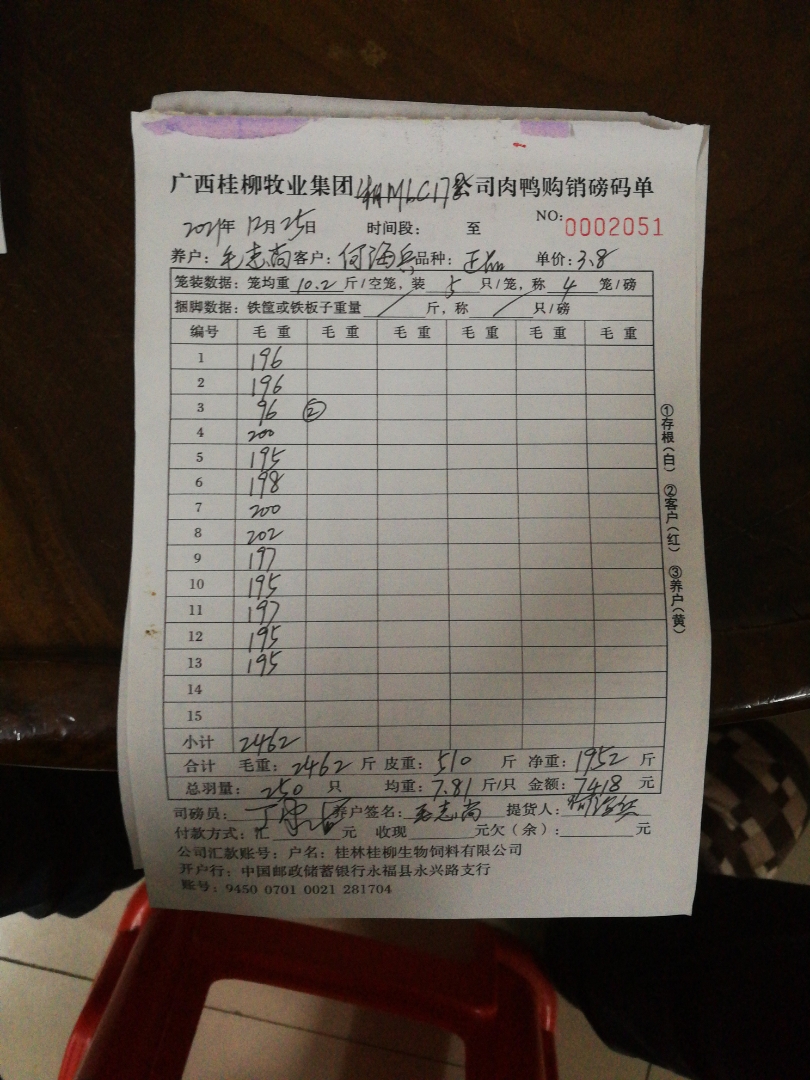 广西桂柳牧业集团 公司肉鸭购销磅码单
2021年 12月 25日 时间段: 至 NO: 0002051
养户: 毛志尚 客户: 何海兵 品种: 正品 单价: 3.8
笼装数据: 笼均重 10.2 斤/空笼, 装 5 只/笼, 称 4 笼/磅
捆脚数据: 铁筐或铁板子重量 斤, 称 只/磅
编号 毛重 毛重 毛重 毛重 毛重 毛重
1 196
2 196
3 96 ②
4 200
5 195
6 198
7 200
8 202
9 197
10 195
11 197
12 195
13 195
14
15
小计 2462
合计 毛重: 2462 斤 皮重: 510 斤 净重: 1952 斤
总羽量: 250 只 均重: 7.81 斤/只 金额: 7418 元
司磅员: 养户签名: 毛志尚 提货人: 何海兵
付款方式: 汇 元 收现 元欠(余): 元
公司汇款账号: 户名: 桂林桂柳生物饲料有限公司
开户行: 中国邮政储蓄银行永福县永兴路支行
账号: 9450 0701 0021 281704
①存根(白) ②客户(红) ③养户(黄)